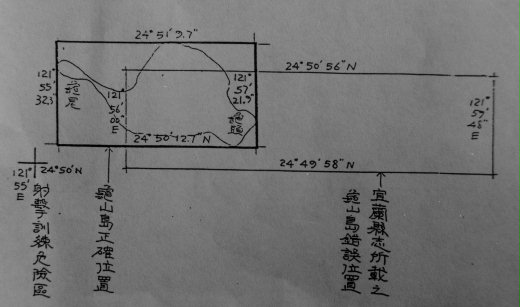 24° 51′ 9.7″
24° 50′ 56″ N
121°
55′
32.3″
龜尾
121°
56′
00″
E
121°
57′
21.9″
龜首
121°
57′
48″
E
24° 50′ 12.7″ N
24° 50′ N
121°
55′
E
24° 49′ 58″ N
射擊訓練危險區
龜山島正確位置
宜蘭縣志所載之
龜山島錯誤位置